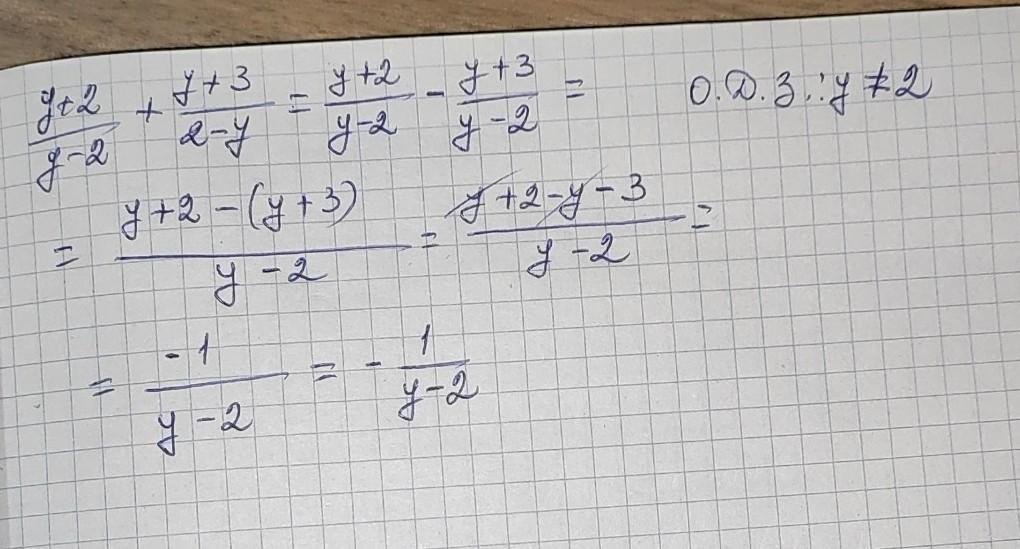 (y+2)/(y-2) + (y+3)/(2-y) = (y+2)/(y-2) - (y+3)/(y-2) = О.Д.З.: y ≠ 2
= (y+2-(y+3))/(y-2) = (y+2-y-3)/(y-2) =
= (-1)/(y-2) = - 1/(y-2)